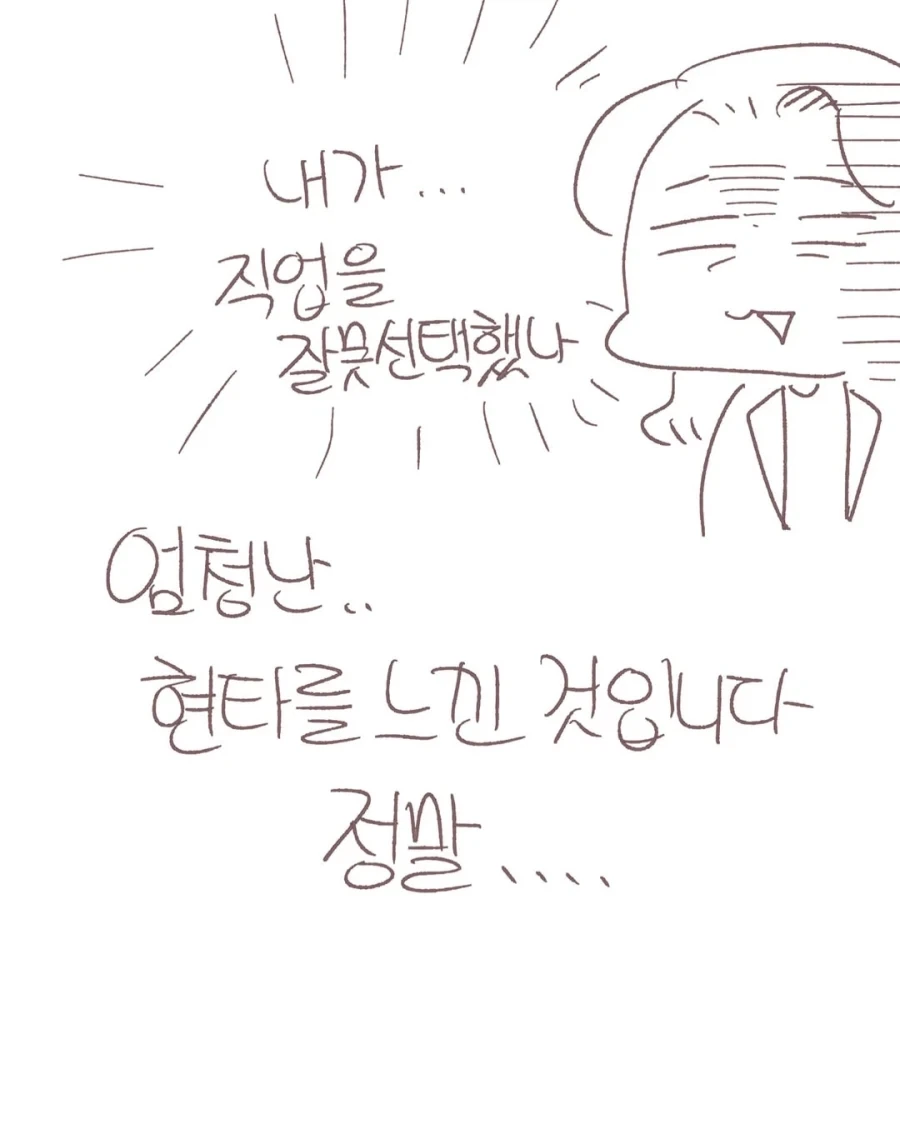 내가...
직업을
잘못선택했나
엄청난..
현타를 느낀 것입니다
정말....